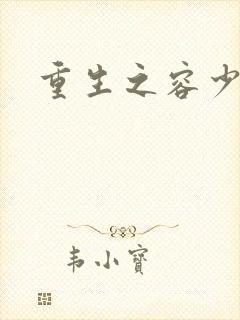 重生之容少
韦小寶